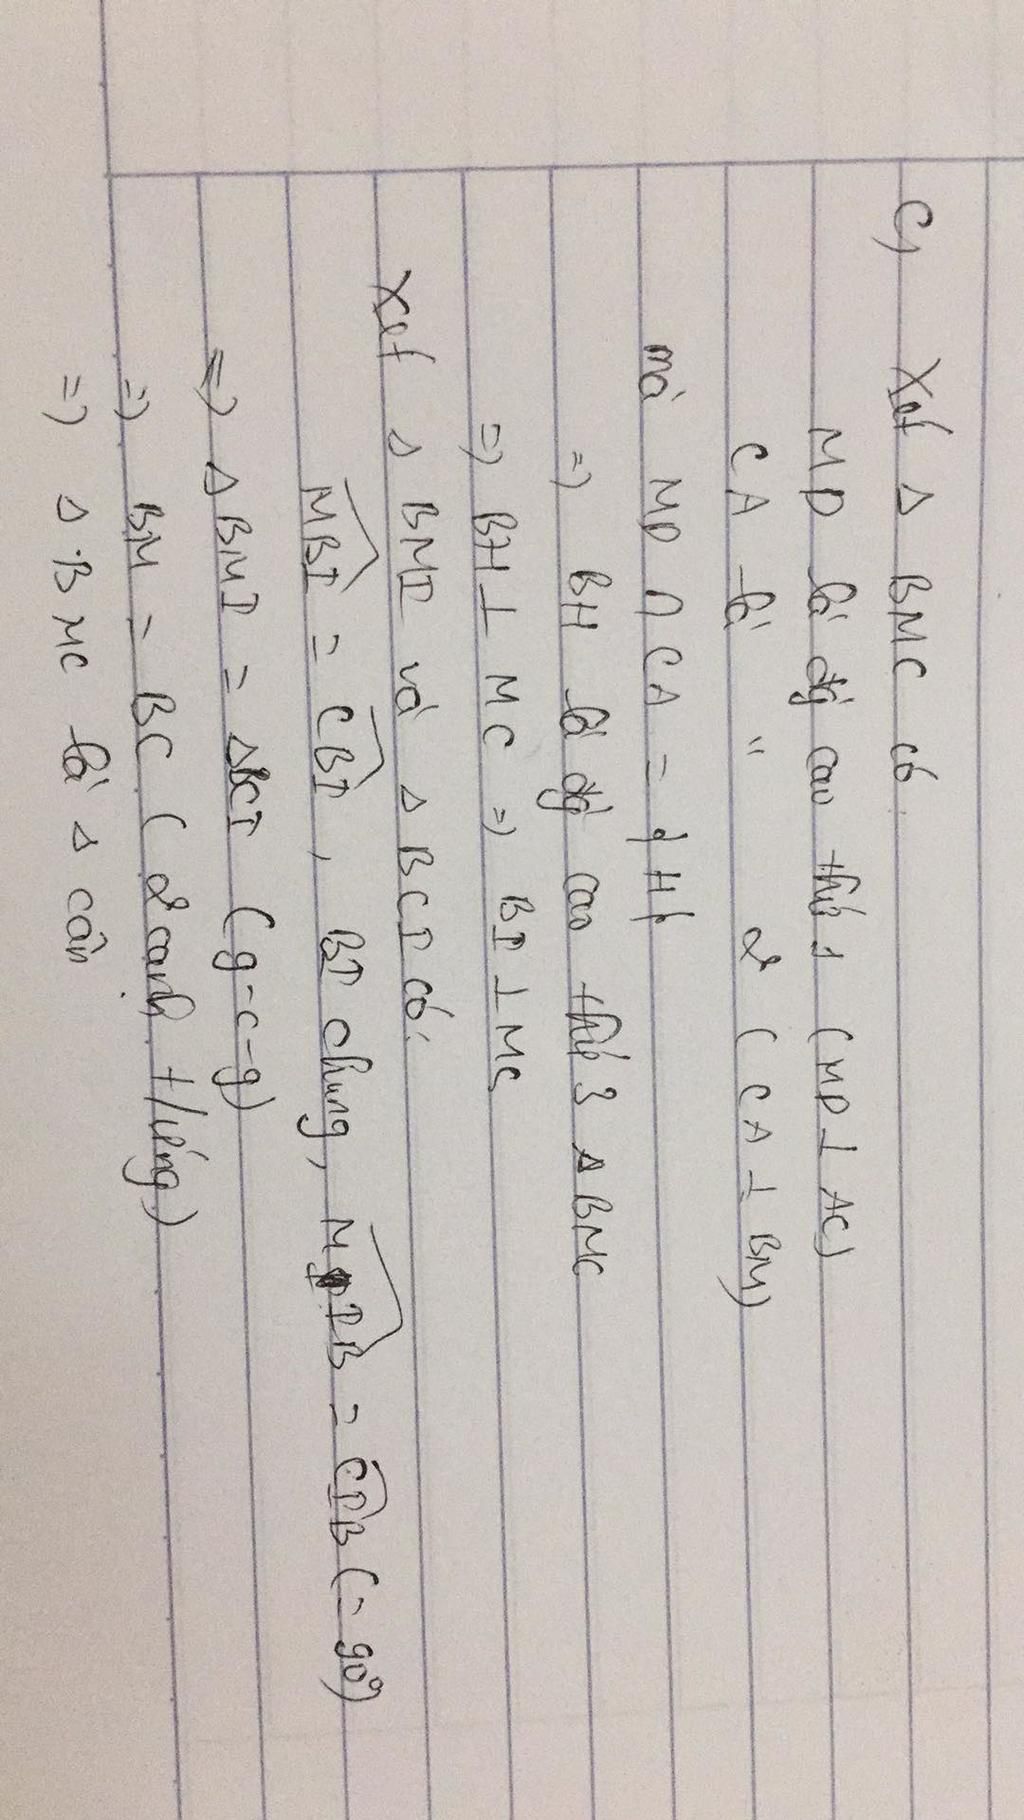 C, Xét Δ BMC có
MD là đg cao thứ 1 (MD ⊥ AC)
CA là " 2 (CA ⊥ BM)
mà MD ∩ CA = {H}
=> BH là đg cao thứ 3 Δ BMC
=> BH ⊥ MC => BI ⊥ MC
Xét Δ BMI và Δ BCI có:
MBI = CBI, BI chung, MIB = CIB (= 90°)
=> Δ BMI = ΔBCI (g-c-g)
=> BM = BC (2 cạnh t/ứng)
=> Δ BMC là Δ cân